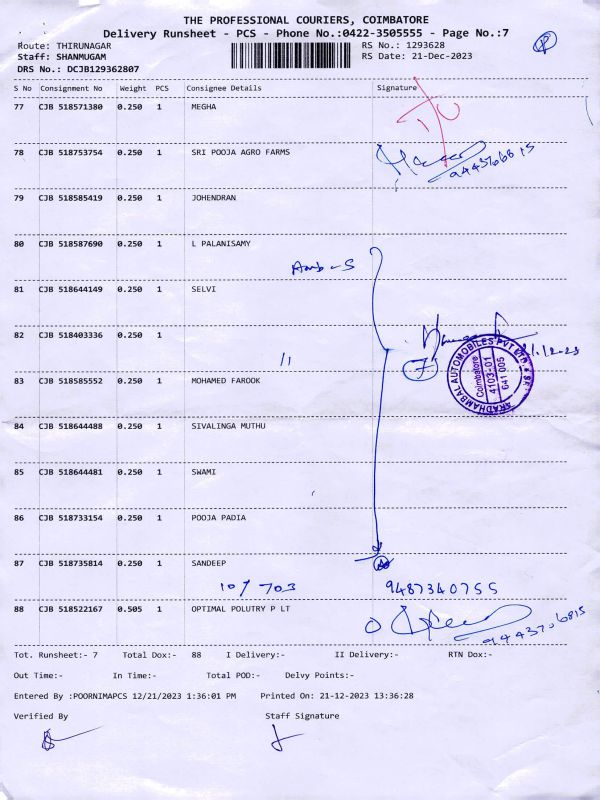 THE PROFESSIONAL COURIERS, COIMBATORE
Delivery Runsheet - PCS - Phone No.:0422-3505555 - Page No.:7
Route: THIRUNAGAR RS No.: 1293628
Staff: SHANMUGAM RS Date: 21-Dec-2023
DRS No.: DCJB129362807
S No Consignment No Weight PCS Consignee Details Signature
77 CJB 518571380 0.250 1 MEGHA
78 CJB 518753754 0.250 1 SRI POOJA AGRO FARMS
79 CJB 518585419 0.250 1 JOHENDRAN
80 CJB 518587690 0.250 1 L PALANISAMY
81 CJB 518644149 0.250 1 SELVI
82 CJB 518403336 0.250 1
11
7
21.12.23
ARADHAMBAL AUTOMOBILES PVT LTD
Coimbatore
4103-01
641 005
83 CJB 518585552 0.250 1 MOHAMED FAROOK
84 CJB 518644488 0.250 1 SIVALINGA MUTHU
85 CJB 518644481 0.250 1 SWAMI
86 CJB 518733154 0.250 1 POOJA PADIA
87 CJB 518735814 0.250 1 SANDEEP
10/ 703 9487340755
88 CJB 518522167 0.505 1 OPTIMAL POLUTRY P LT
9443706815
Tot. Runsheet:- 7 Total Dox:- 88 I Delivery:- II Delivery:- RTN Dox:-
Out Time:- In Time:- Total POD:- Delvy Points:-
Entered By :POORNIMAPCS 12/21/2023 1:36:01 PM Printed On: 21-12-2023 13:36:28
Verified By Staff Signature